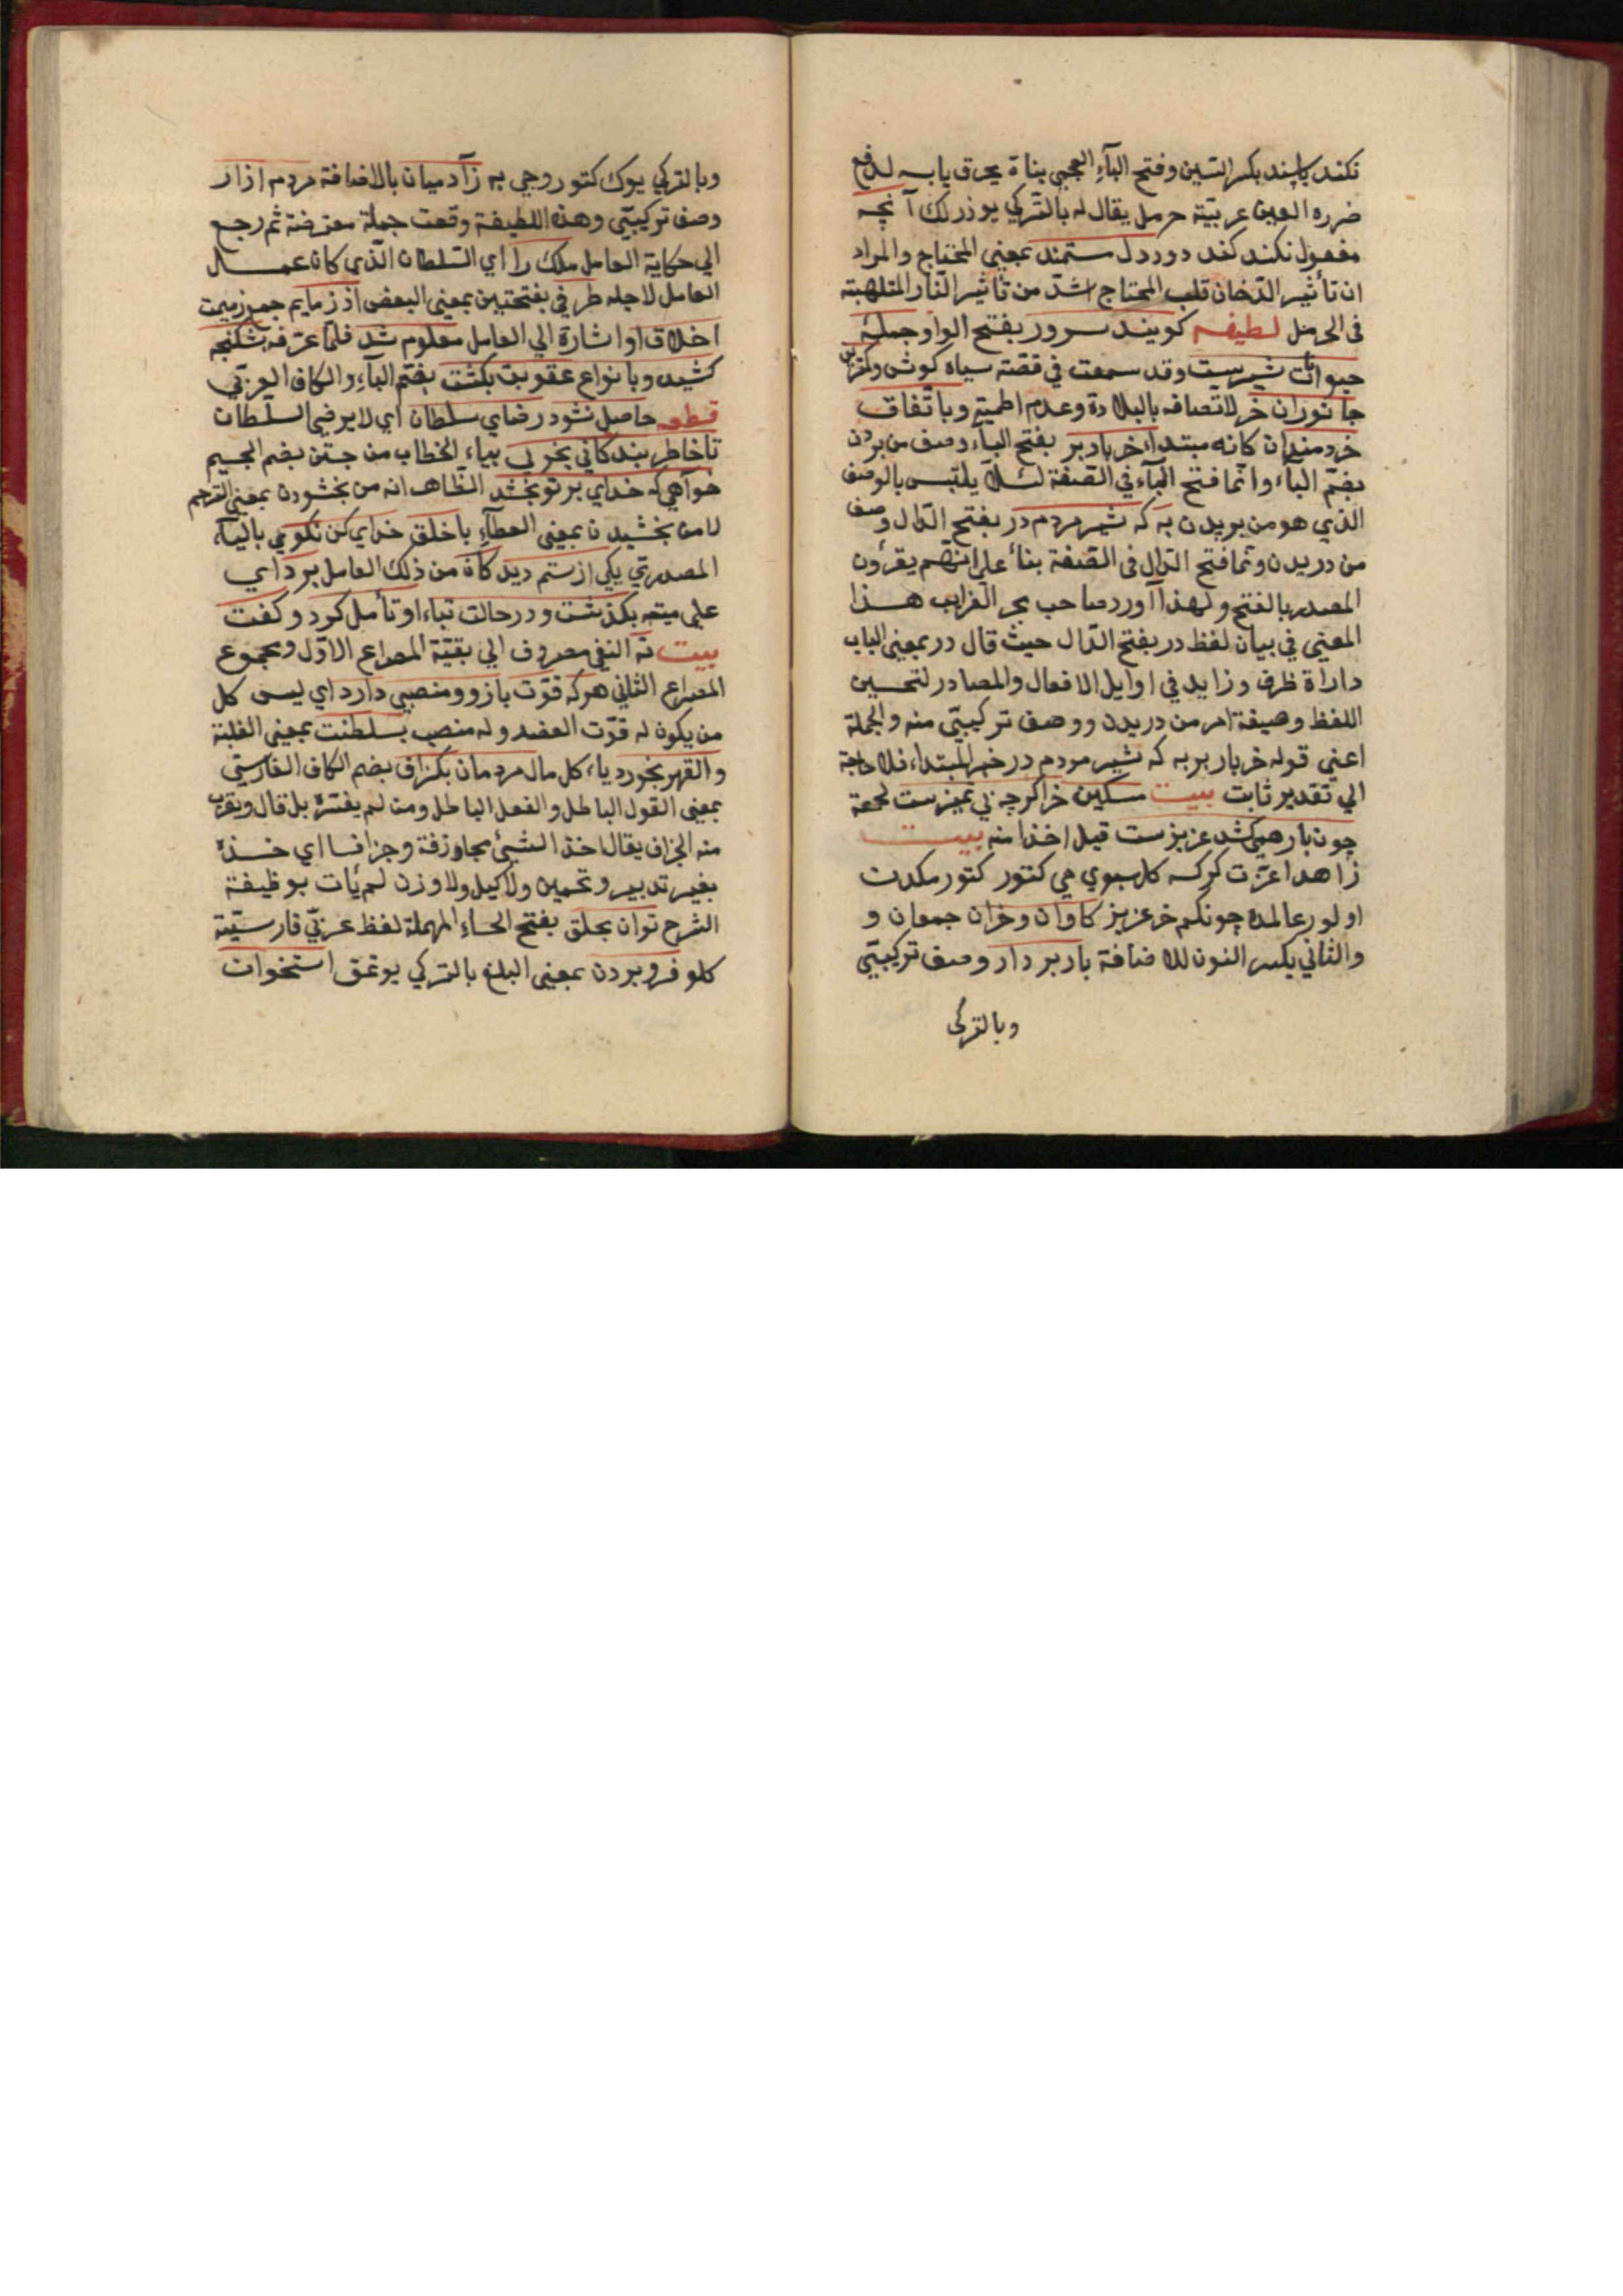 نكند باسپند بكسر السين وفتح الباء العجمي بناة يحرق يابسه لدفع
ضرره العين عربيّة حرمل يقال له بالتركي يوذرلك آنچه
مفعول نكند كند دود دل ستمند بمعني المحتاج والمراد
ان تأثير الدّخان قلب المحتاج اشدّ من تأثير النّار المتلهبة
فى الحرمل لطيفه كويند سرور بفتح الواو جملهٔ
حيوانات شيرست وقد سمعت في قصّة سياه كوش وكمترين
جانوران خر لاتصافه بالبلادة وعدم اطميّة وباتّفاق
خردمندان كانه مبتدا خر باربر بفتح الباء وصف من بردن
بضمّ الباء وانّما فتح الباء في الصّفة لئلاّ يلتبس بالوصف
الذي هو من بريدن به كه شير مردم در بفتح الدّال وصف
من دريدن وثما فتح الدّال فى الصّفة بناءً على انّهم يقرؤن
المصدر بالفتح ولهذا آورد صاحب بحر الغرايب هذا
المعني في بيان لفظ در بفتح الدّال حيث قال در بمعنى الباب
داراة ظرف وزايد في اوايل الافعال والمصادر لتحسين
اللفظ وصيغة امر من دريدن ووصف تركيبّي منه والجملة
اعني قوله خر باربر به كه شير مردم در خبر المبتداء فلا حاجة
الي تقدير ثابت بيت مسكين خر اكرچه بي تميزست لمحعة
چون بار همي كشد عزيزست قيل اخذا منه بيت
زاهدا عزّت كركسه كل سبوي مي كتور كتور مكدن
اولور عالمده چونكم خر عزيز كاوان وخران جمعان و
والثاني بكسر النون للاضافة باربردار وصف تركيبّي
وبالتركى
وبالتركي يوك كتوروجي به زآدميان بالاضافة مردم ازار
وصف تركيبّي وهذه اللطيفة وقعت جملة معترضة ثم رجع
الي حكاية العامل ملك را اي السّلطان الّذي كان عمل
العامل لاجله طرفي بفتحتين بمعنى البعض اذ زمايم جمع زميمت
اخلاق او اشارة الي العامل معلوم شد فلمّا عرفه بشكنجه
كشيد وبانواع عقوبت بكشت بضمّ الباء والكاف العربّي
قطعه حاصل نشود رضاي سلطان اي لا يرضى السلّطان
تا خاطر بندكاني نجوئي بياء الخطاب من جستن بضم الجيم
خوآهي كه خداي بر تو بخشد الظّاهر انه من بخشودن بمعنى الترحم
لا من بخشيدن بمعنى العطاء با خلق خداي كن نكويي بالياء
المصدرّي يكي از ستم ديدكان من ذلك العامل بر داي
على ميته بكذشت ودر حالت تباه او تأمل كرد وكفت
بيت نه النفي مصروف الي بقيّة المصراع الاوّل ومجموع
المصراع الثاني هركه قوّت بازو ومنصبي دارد اي ليس كل
من يكون له قوّت العضد وله منصب بسلطنت بمعنى الغلبة
والقهر بخورد ياء كل مال مردمان بكزاف بضم الكاف الفارسّي
بمعنى القول الباطل والفعل الباطل ومن لم يفسّره بل قال ويعرب
منه الجزاف يقال اخذ الشيئ مجاوزفة وجزافا اي خذه
بغير تدبير وتخمين ولا كيل ولا وزن لم يأت بوظيفة
الشرح توان بحلق بفتح الحاء المهملة لفظ عربيّ فارسيّة
كلو فرو بردن بمعنى البلع بالتركي يوتمق استخوان